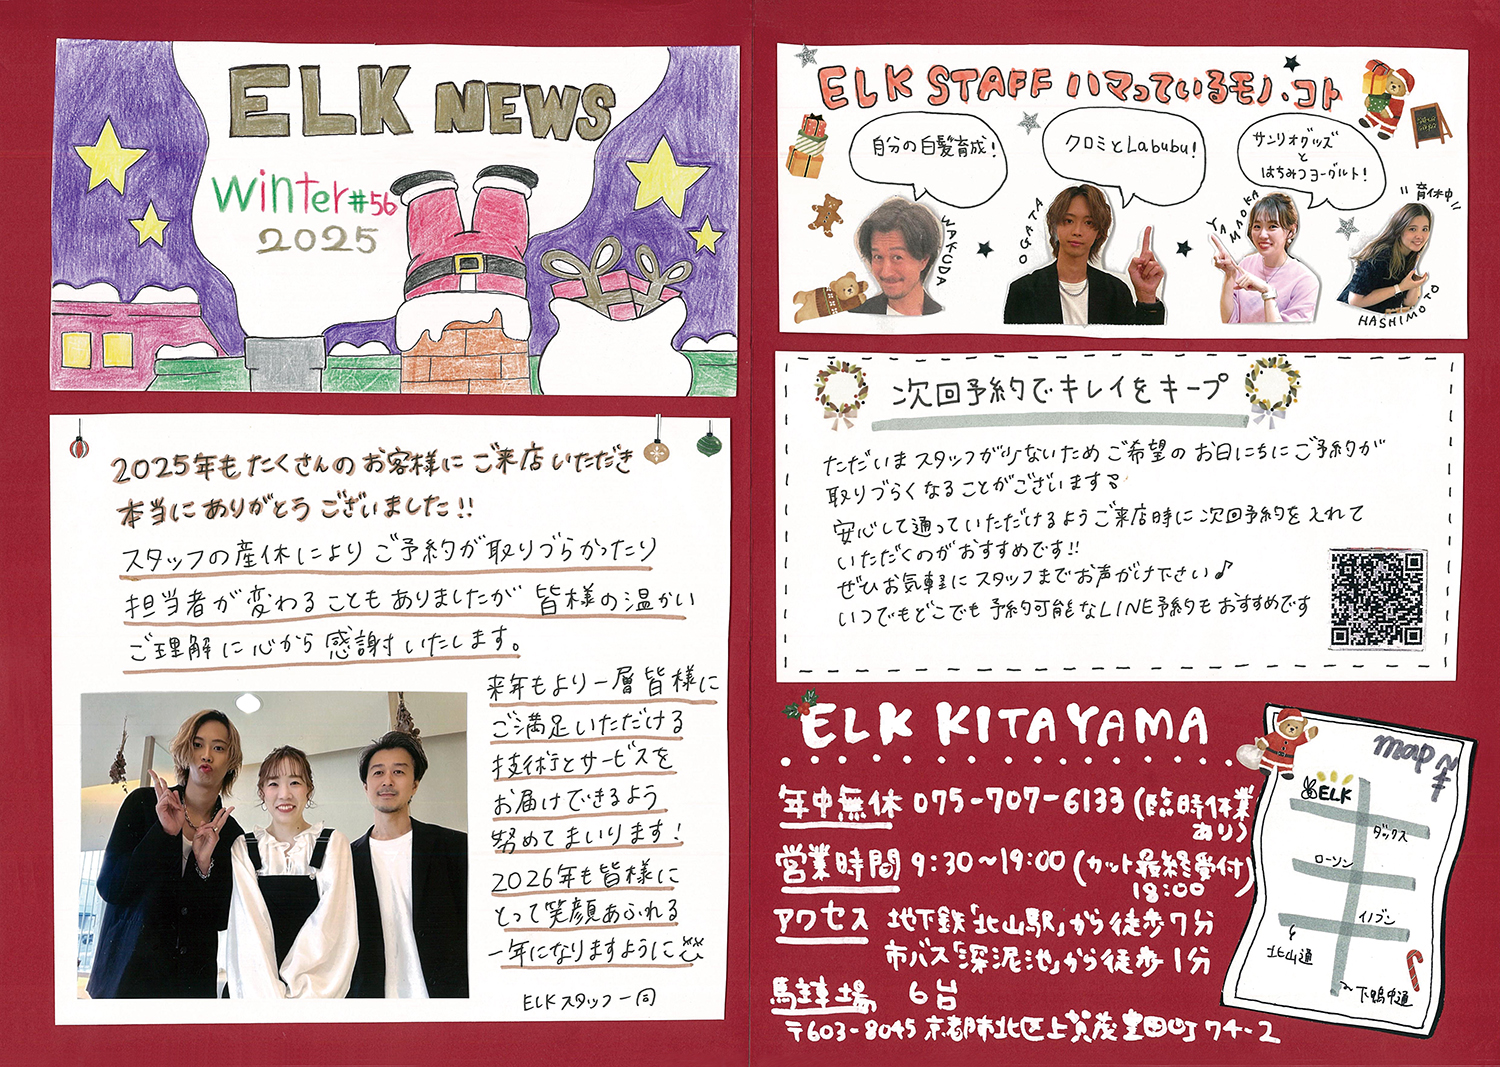 ELK NEWS
winter#56
2025
2025年もたくさんのお客様にご来店いただき
本当にありがとうございました!!
スタッフの産休によりご予約が取りづらかったり
担当者が変わることもありましたが皆様の温かい
ご理解に心から感謝いたします。
来年もより一層皆様に
ご満足いただける
技術とサービスを
お届けできるよう
努めてまいります!
2026年も皆様に
とって笑顔あふれる
一年になりますように
ELKスタッフ一同
ELK STAFF ハマっているモノ、コト
自分の白髪育成!
WAKUDA
クロミとLabubu!
OGATA
サンリオグッズ
と
はちみつヨーグルト!
YAMAOKA
"育休中"
HASHIMOTO
次回予約でキレイをキープ
ただいまスタッフが少ないためご希望のお日にちにご予約が
取りづらくなることがございます
安心して通っていただけるようご来店時に次回予約を入れて
いただくのがおすすめです!!
ぜひお気軽にスタッフまでお声がけ下さい♪
いつでもどこでも予約可能なLINE予約もおすすめです
ELK KITAYAMA
年中無休 075-707-6133(臨時休業
あり)
営業時間 9:30~19:00(カット最終受付)
18:00
アクセス 地下鉄「北山駅」から徒歩7分
市バス「深泥池」から徒歩1分
駐車場 6台
〒603-8045 京都市北区上賀茂豊田町74-2
map
N
ELK
ダックス
ローソン
イノブン
北山通
下鴨中通